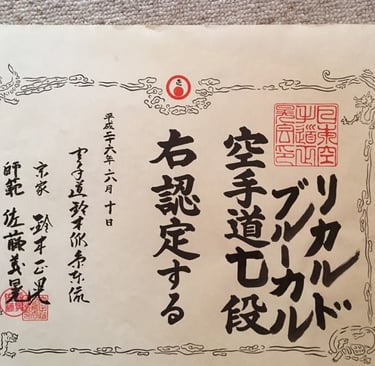 リカルド
ブルーカル
空手道七段
右認定する
平成二十六年六月十日
空手道鈴木派糸東流
宗家 鈴木正晃
師範 佐藤